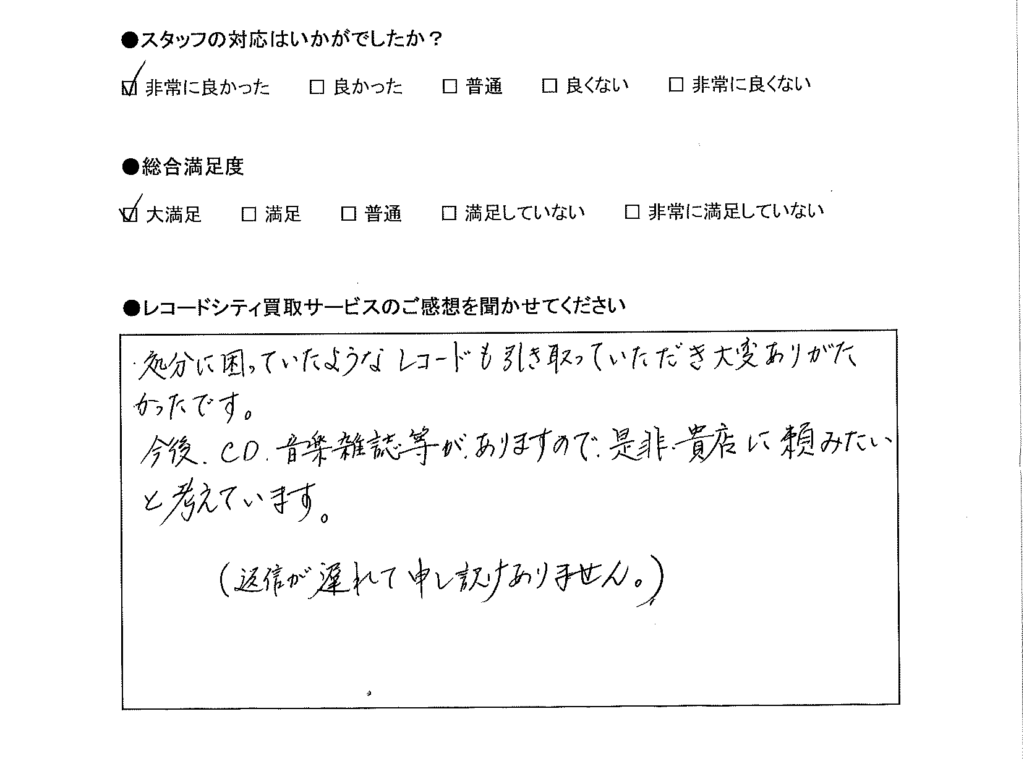 ●スタッフの対応はいかがでしたか?
☑ 非常に良かった □ 良かった □ 普通 □ 良くない □ 非常に良くない
●総合満足度
☑ 大満足 □ 満足 □ 普通 □ 満足していない □ 非常に満足していない
●レコードシティ買取サービスのご感想を聞かせてください
処分に困っていたようなレコードも引き取っていただき大変ありがた
かったです。
今後、CD、音楽雑誌等が、ありますので、是非、貴店に頼みたい
と考えています。
(返信が遅れて申し訳ありません。)